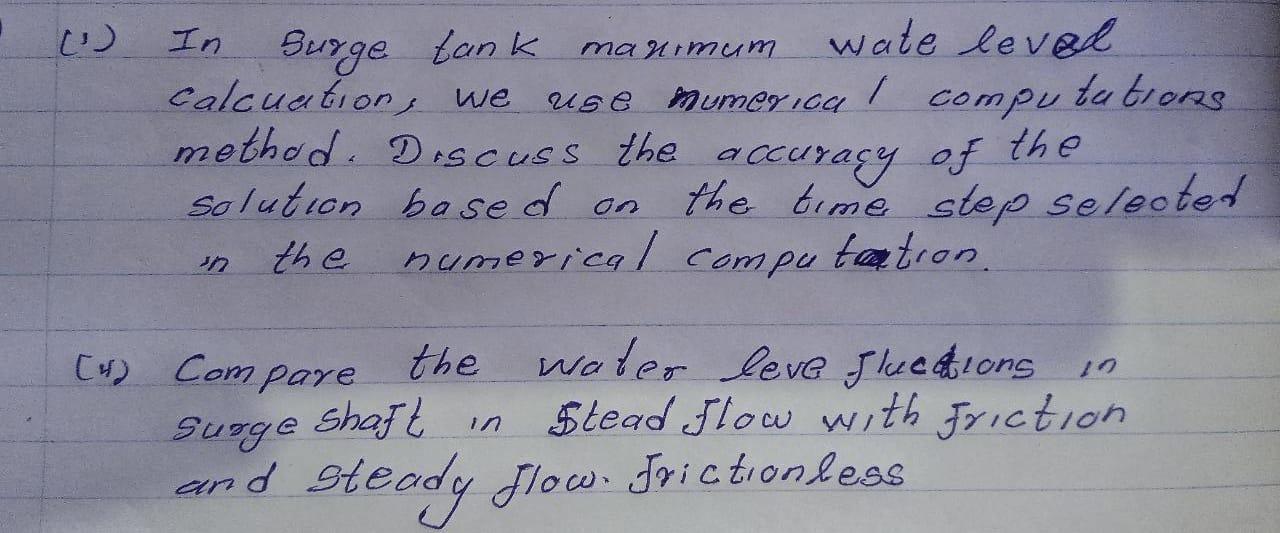 (1) In Surge tank maximum wate level
calcuations, we use numerical computations
method. Discuss the accuracy of the
solution based on the time step selected
in the numerical computation.
(4) Compare the water leve fluctions in
surge shaft in Stead flow with friction
and steady flow. frictionless